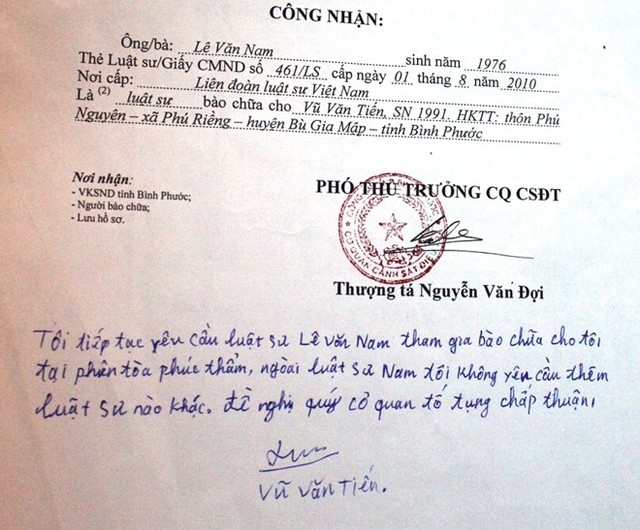 CÔNG NHẬN:
Ông/bà: Lê Văn Nam sinh năm 1976
Thẻ Luật sư/Giấy CMND số 461/LS cấp ngày 01 tháng 8 năm 2010
Nơi cấp: Liên đoàn luật sư Việt Nam
Là (2) luật sư bào chữa cho Vũ Văn Tiến, SN 1991. HKTT: thôn Phú
Nguyên – xã Phú Riềng – huyện Bù Gia Mập – tỉnh Bình Phước
Nơi nhận:
- VKSND tỉnh Bình Phước;
- Người bào chữa;
- Lưu hồ sơ.
PHÓ THỦ TRƯỞNG CQ CSĐT
CƠ QUAN CẢNH SÁT ĐIỀU
Thượng tá Nguyễn Văn Đợi
Tôi tiếp tục yêu cầu luật sư Lê Văn Nam tham gia bào chữa cho tôi
tại phiên tòa phúc thẩm, ngoài luật sư Nam tôi không yêu cầu thêm
luật sư nào khác. Đề nghị quý cơ quan tố tụng chấp thuận.
Vũ Văn Tiến.